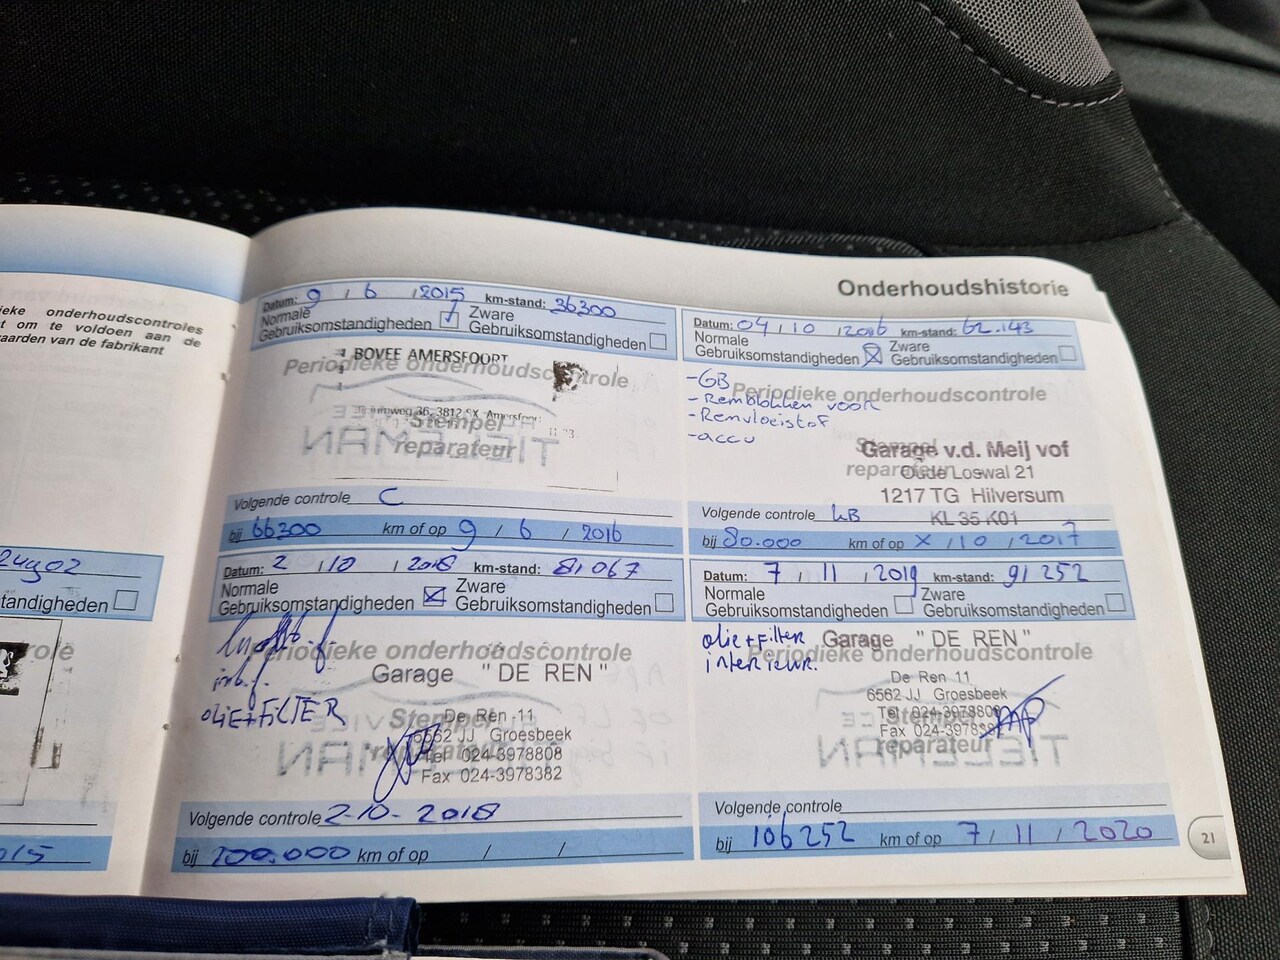 ieke onderhoudscontroles
t om te voldoen aan de
aarden van de fabrikant
tandigheden
Onderhoudshistorie
Datum: 9 / 6 / 2015 km-stand: 36300
Normale Gebruiksomstandigheden
Zware Gebruiksomstandigheden
BOVEE AMERSFOORT
Periodieke onderhoudscontrole
36, 3812 SX Amersfoort
Stempel
reparateur
Volgende controle C
bij 66300 km of op 9 / 6 / 2016
Datum: 04 / 10 / 2016 km-stand: 62.143
Normale Gebruiksomstandigheden
Zware Gebruiksomstandigheden
-GB
Periodieke onderhoudscontrole
-Remblokken voor
-Remvloeistof
-accu
Stempel
reparateur
Garage v.d. Meij vof
Oude Loswal 21
1217 TG Hilversum
KL 35 K01
Volgende controle
bij 80.000 km of op X / 10 / 2017
Datum: 2 / 10 / 2018 km-stand: 81.067
Normale Gebruiksomstandigheden
Zware Gebruiksomstandigheden
Periodieke onderhoudscontrole
Garage "DE REN"
OLIE+FILTER
Stempel
reparateur
De Ren 11
6562 JJ Groesbeek
Tel 024-3978808
Fax 024-3978382
Volgende controle 2-10-2018
bij 100.000 km of op / /
Datum: 7 / 11 / 2019 km-stand: 91252
Normale Gebruiksomstandigheden
Zware Gebruiksomstandigheden
olie+Filter
Garage "DE REN"
Periodieke onderhoudscontrole
interieur.
De Ren 11
6562 JJ Groesbeek
Tel 024-3978808
Fax 024-3978
Stempel
reparateur
Volgende controle
bij 106252 km of op 7 / 11 / 2020
21